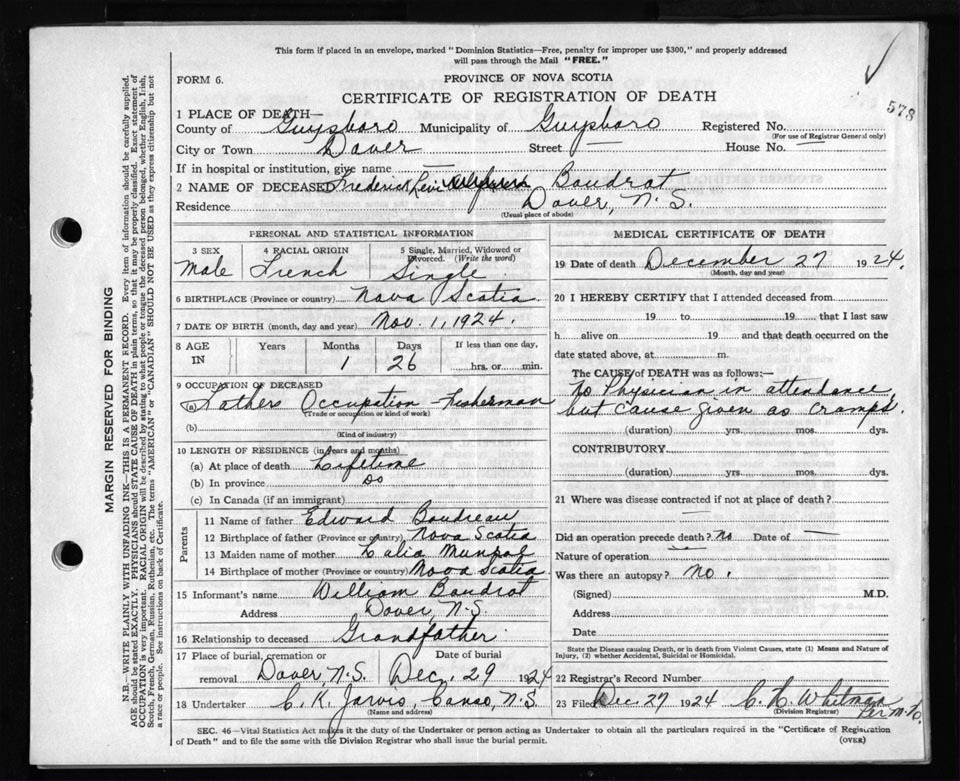 This form if placed in an envelope, marked "Dominion Statistics—Free, penalty for improper use $300," and properly addressed
will pass through the Mail "FREE."
FORM 6.
PROVINCE OF NOVA SCOTIA
578
CERTIFICATE OF REGISTRATION OF DEATH
1 PLACE OF DEATH—
County of Guysboro Municipality of Guysboro Registered No.
(For use of Registrar General only)
City or Town Dover Street — House No. —
If in hospital or institution, give name —
2 NAME OF DECEASED Frederick Levi Boudrot
Residence Dover, N. S.
(Usual place of abode)
PERSONAL AND STATISTICAL INFORMATION
3 SEX 4 RACIAL ORIGIN 5 Single, Married, Widowed or Divorced. (Write the word)
Male French Single
6 BIRTHPLACE (Province or country) Nova Scotia
7 DATE OF BIRTH (month, day and year) Nov. 1, 1924.
8 AGE IN Years Months Days If less than one day,
1 26 hrs. or min.
9 OCCUPATION OF DECEASED
(a) Fathers Occupation Fisherman
(Trade or occupation or kind of work)
(b)
(Kind of industry)
10 LENGTH OF RESIDENCE (in years and months)
(a) At place of death Lifetime
(b) In province Do
(c) In Canada (if an immigrant)
Parents
11 Name of father Edward Boudreau
12 Birthplace of father (Province or country) Nova Scotia
13 Maiden name of mother
14 Birthplace of mother (Province or country) Nova Scotia
15 Informant's name William Boudrot
Address Dover, N.S.
16 Relationship to deceased Grandfather
17 Place of burial, cremation or removal Date of burial
Dover N.S. Dec. 29 1924
18 Undertaker C. K. Jarvis, Canso, N.S.
(Name and address)
MEDICAL CERTIFICATE OF DEATH
19 Date of death December 27 1924.
(Month, day and year)
20 I HEREBY CERTIFY that I attended deceased from
19 to 19 that I last saw
h alive on 19 and that death occurred on the
date stated above, at m.
The CAUSE of DEATH was as follows:—
No Physician in attendance,
but cause given as cramps.
(duration) yrs. mos. dys.
CONTRIBUTORY.
(duration) yrs. mos. dys.
21 Where was disease contracted if not at place of death?
—
Did an operation precede death? No Date of —
Nature of operation —
Was there an autopsy? No.
(Signed) M.D.
Address
Date
State the Disease causing Death, or in death from Violent Causes, state (1) Means and Nature of
Injury, (2) whether Accidental, Suicidal or Homicidal.
22 Registrar's Record Number
23 Filed Dec. 27 1924 Whitman
(Division Registrar)
SEC. 46—Vital Statistics Act makes it the duty of the Undertaker or person acting as Undertaker to obtain all the particulars required in the "Certificate of Registration
of Death" and to file the same with the Division Registrar who shall issue the burial permit. (OVER)
MARGIN RESERVED FOR BINDING
N.B.—WRITE PLAINLY WITH UNFADING INK—THIS IS A PERMANENT RECORD. Every item of information should be carefully supplied.
AGE should be stated EXACTLY. PHYSICIANS should STATE CAUSE OF DEATH in plain terms, so that it may be properly classified. Exact statement of
OCCUPATION is very important. RACIAL ORIGIN will be described by stating to what people or tongue the deceased person belonged, whether English, Irish,
Scotch, French, German, Russian, Ruthenian, etc. The terms "AMERICAN" or "CANADIAN" SHOULD NOT BE USED as they express citizenship but not
a race or people. See instructions on back of Certificate.